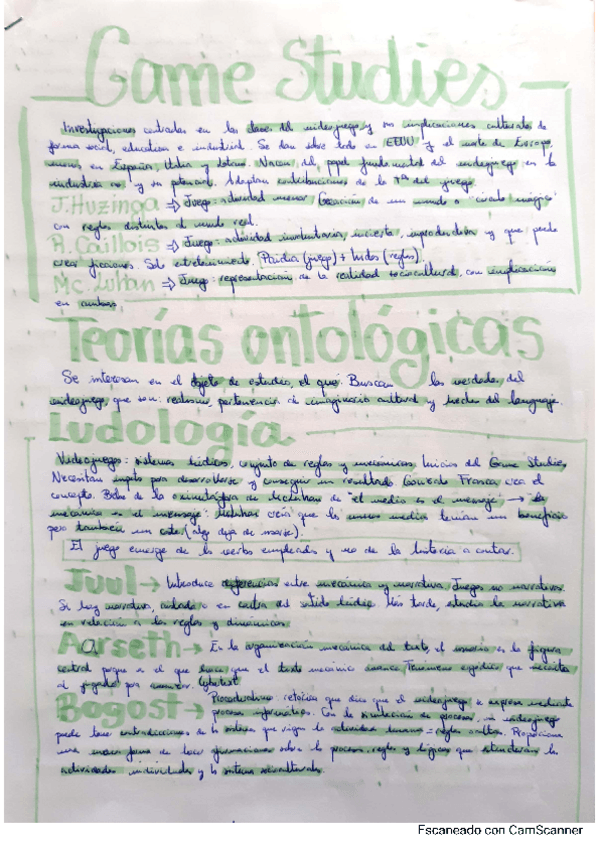 Game Studies
Investigaciones centradas en las claves del videojuego y sus implicaciones culturales de
forma social, educativa e industrial. Se dan sobre todo en EEUU y el norte de Europa,
menos en España, Italia y Latam. Nacen del papel fundamental del videojuego en la
industria y su potencial. Adoptan contribuciones de la Tª del juego.
J.Huzinga ⇒ Juego: actividad menor, Creación de un mundo o "círculo mágico"
con reglas distintas al mundo real.
R. Caillois ⇒ Juego: actividad involuntaria, incierta, improductiva y que puede
crear ficciones. Solo entretenimiento. Paidia (juego) + ludos (reglas).
Mc. Luhan ⇒ Juego: representación de la realidad sociocultural, con implicación
en ambos.
Teorías ontológicas
Se interesan en el objeto de estudio, el qué. Buscan las verdades del
videojuego, que son: realismo, pertenencia de imaginario cultural y hecho del lenguaje.
Ludología
Videojuegos: sistemas lúdicos, conjunto de reglas y mecánicas. Inicios del Game Studies,
Necesitan inputs para desarrollarse y conseguir un resultado. Gonzalo Frasca crea el
concepto. Bebe de la de Mcluhan de "el medio es el mensaje" → la
mecánica es el mensaje. Mcluhan creía que los nuevos medios tenían un beneficio
pero también un coste (algo deja de
El juego emerge de los verbos empleados y no de la historia a contar.
Juul → Introduce diferencias entre mecánica y narrativa. Juegos no narrativos.
Si hay narrativa, en contra del sentido lúdico. Más tarde, estudia la narrativa
en relación a las reglas y dinámicas.
Aarseth → Es la organización mecánica del texto, el usuario es la figura
central porque es el que hace que el texto mecánico avance. ergódico que necesita
al jugador para avanzar.
Bogost → retórica que dice que el videojuego se expresa mediante
procesos informáticos. Con la simulación de procesos, un videojuego
puede hacer de los sistemas que rigen la actividad humana = reglas ocultas. Proporciona
una nueva forma de hacer afirmaciones sobre los procesos, reglas y lógicas que estructuran las
actividades individuales y los sistemas socioculturales.
Escaneado con CamScanner